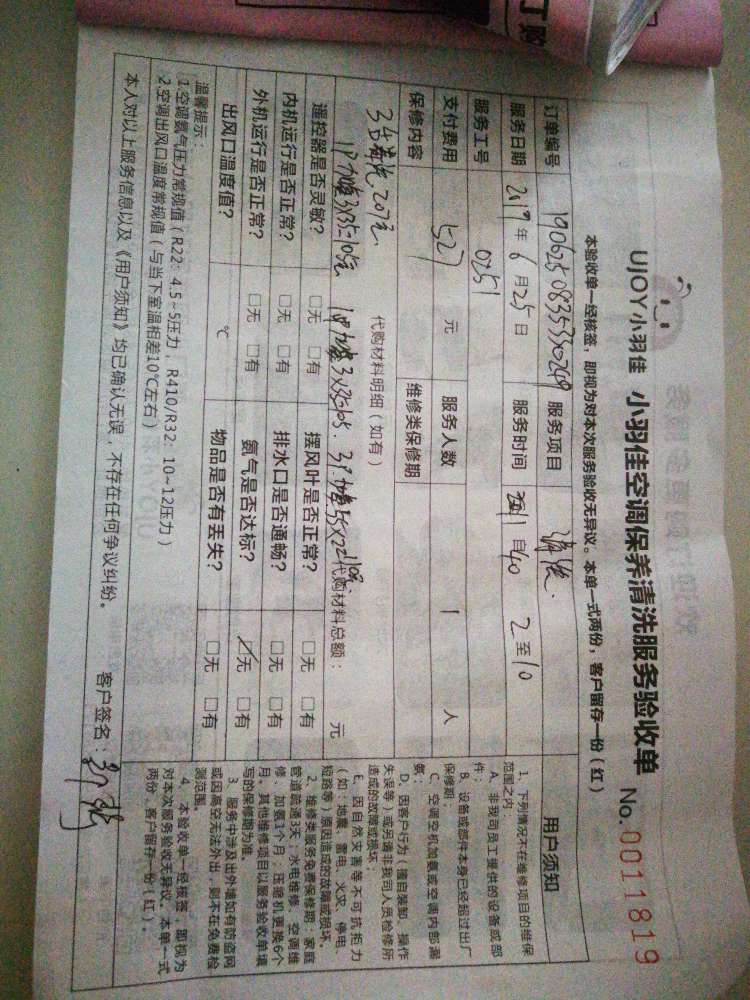 UJOY小羽佳 小羽佳空调保养清洗服务验收单 No.0011819
本验收单一经核签，即视为对本次服务验收无异议。本单一式两份，客户留存一份（红）
订单编号 1906250835330249 服务项目 清洗
服务日期 2019年6月25日 服务时间 自 至
服务工号 0251
支付费用 527 元 服务人数 1 人
保修内容 维修类保修期
代购材料明细（如有）
3 清洗207元
代购材料总额： 元
遥控器是否灵敏？ □无 □有 摆风叶是否正常？ □无 □有
内机运行是否正常？ □无 □有 排水口是否通畅？ □无 □有
外机运行是否正常？ □无 □有 氨气是否达标？ □无 □有
出风口温度值？ ℃ 物品是否有丢失？ □无 □有
温馨提示：
1.空调氨气压力常规值（R22：4.5~5压力，R410/R32：10~12压力）
2.空调出风口温度常规值（与当下室温相差10℃左右）
本人对以上服务信息以及《用户须知》均已确认无误，不存在任何争议纠纷。
客户签名：
用户须知
1、下列情况不在维修项目的维保
范围之内：
A、非我司员工提供的设备或部
件；
B、设备或部件本身已经超过出厂
保修期；
C、空调空机加氨或空调内部漏
氨；
D、因客户行为（擅自装卸、操作
失误等）或另请非我司人员检修所
造成的故障或损坏；
E、因自然灾害等不可抗拒力
（如：地震、雷电、火灾、停电、
短路等）原因造成的故障或损坏。
2、维修类服务免费保修期：家庭
管道疏通3天、水电维修、空调维
修、加氨1个月；压缩机更换6个
月。其他维修项目以服务验收单填
写的保修期为准。
3、服务中涉及出外墙如有防盗网
或因高空无法外出，则不在免费检
测范围。
4、本验收单一经核签，即视为
对本次服务验收无异议。本单一式
两份，客户留存一份（红）。